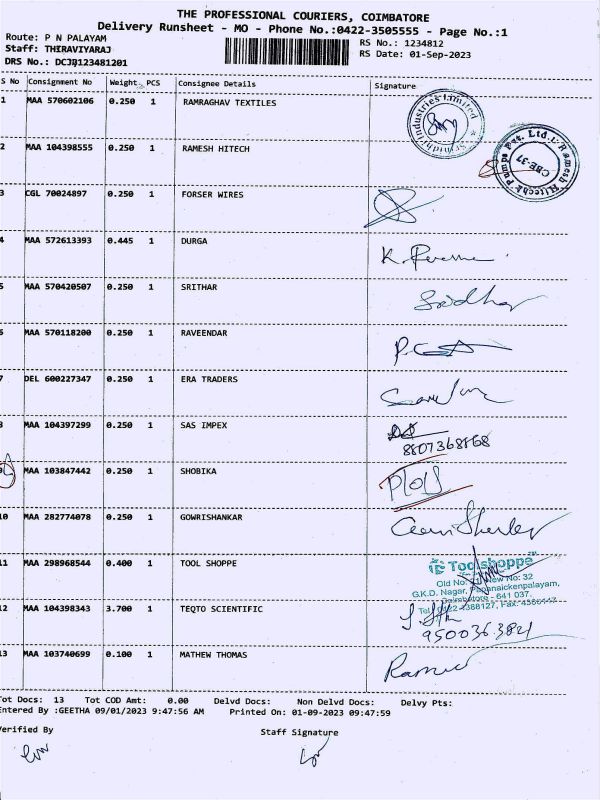 THE PROFESSIONAL COURIERS, COIMBATORE
Delivery Runsheet - MO - Phone No.:0422-3505555 - Page No.:1
Route: P N PALAYAM
RS No.: 1234812
Staff: THIRAVIYARAJ
RS Date: 01-Sep-2023
DRS No.: DCJD123481201
S No Consignment No Weight. PCS Consignee Details Signature
1 MAA 570602106 0.250 1 RAMRAGHAV TEXTILES
Industries Limited
2 MAA 104398555 0.250 1 RAMESH HITECH
Ramesh Hitech Pumps Pvt. Ltd.
CBE-37
3 CGL 70024897 0.250 1 FORSER WIRES
4 MAA 572613393 0.445 1 DURGA
K.
5 MAA 570420507 0.250 1 SRITHAR
Sridhar
6 MAA 570118200 0.250 1 RAVEENDAR
7 DEL 600227347 0.250 1 ERA TRADERS
8 MAA 104397299 0.250 1 SAS IMPEX
8807368868
9 MAA 103847442 0.250 1 SHOBIKA
10 MAA 282774078 0.250 1 GOWRISHANKAR
11 MAA 298968544 0.400 1 TOOL SHOPPE
Toolshoppe
Old No: New No: 32
G.K.D. Nagar, Pappanaickenpalayam,
Coimbatore - 641 037.
12 MAA 104398343 3.700 1 TEQTO SCIENTIFIC
Tel: 0422 4388127, Fax:
9500363821
13 MAA 103740699 0.100 1 MATHEW THOMAS
Tot Docs: 13 Tot COD Amt: 0.00 Delvd Docs: Non Delvd Docs: Delvy Pts:
Entered By :GEETHA 09/01/2023 9:47:56 AM Printed On: 01-09-2023 09:47:59
Verified By Staff Signature